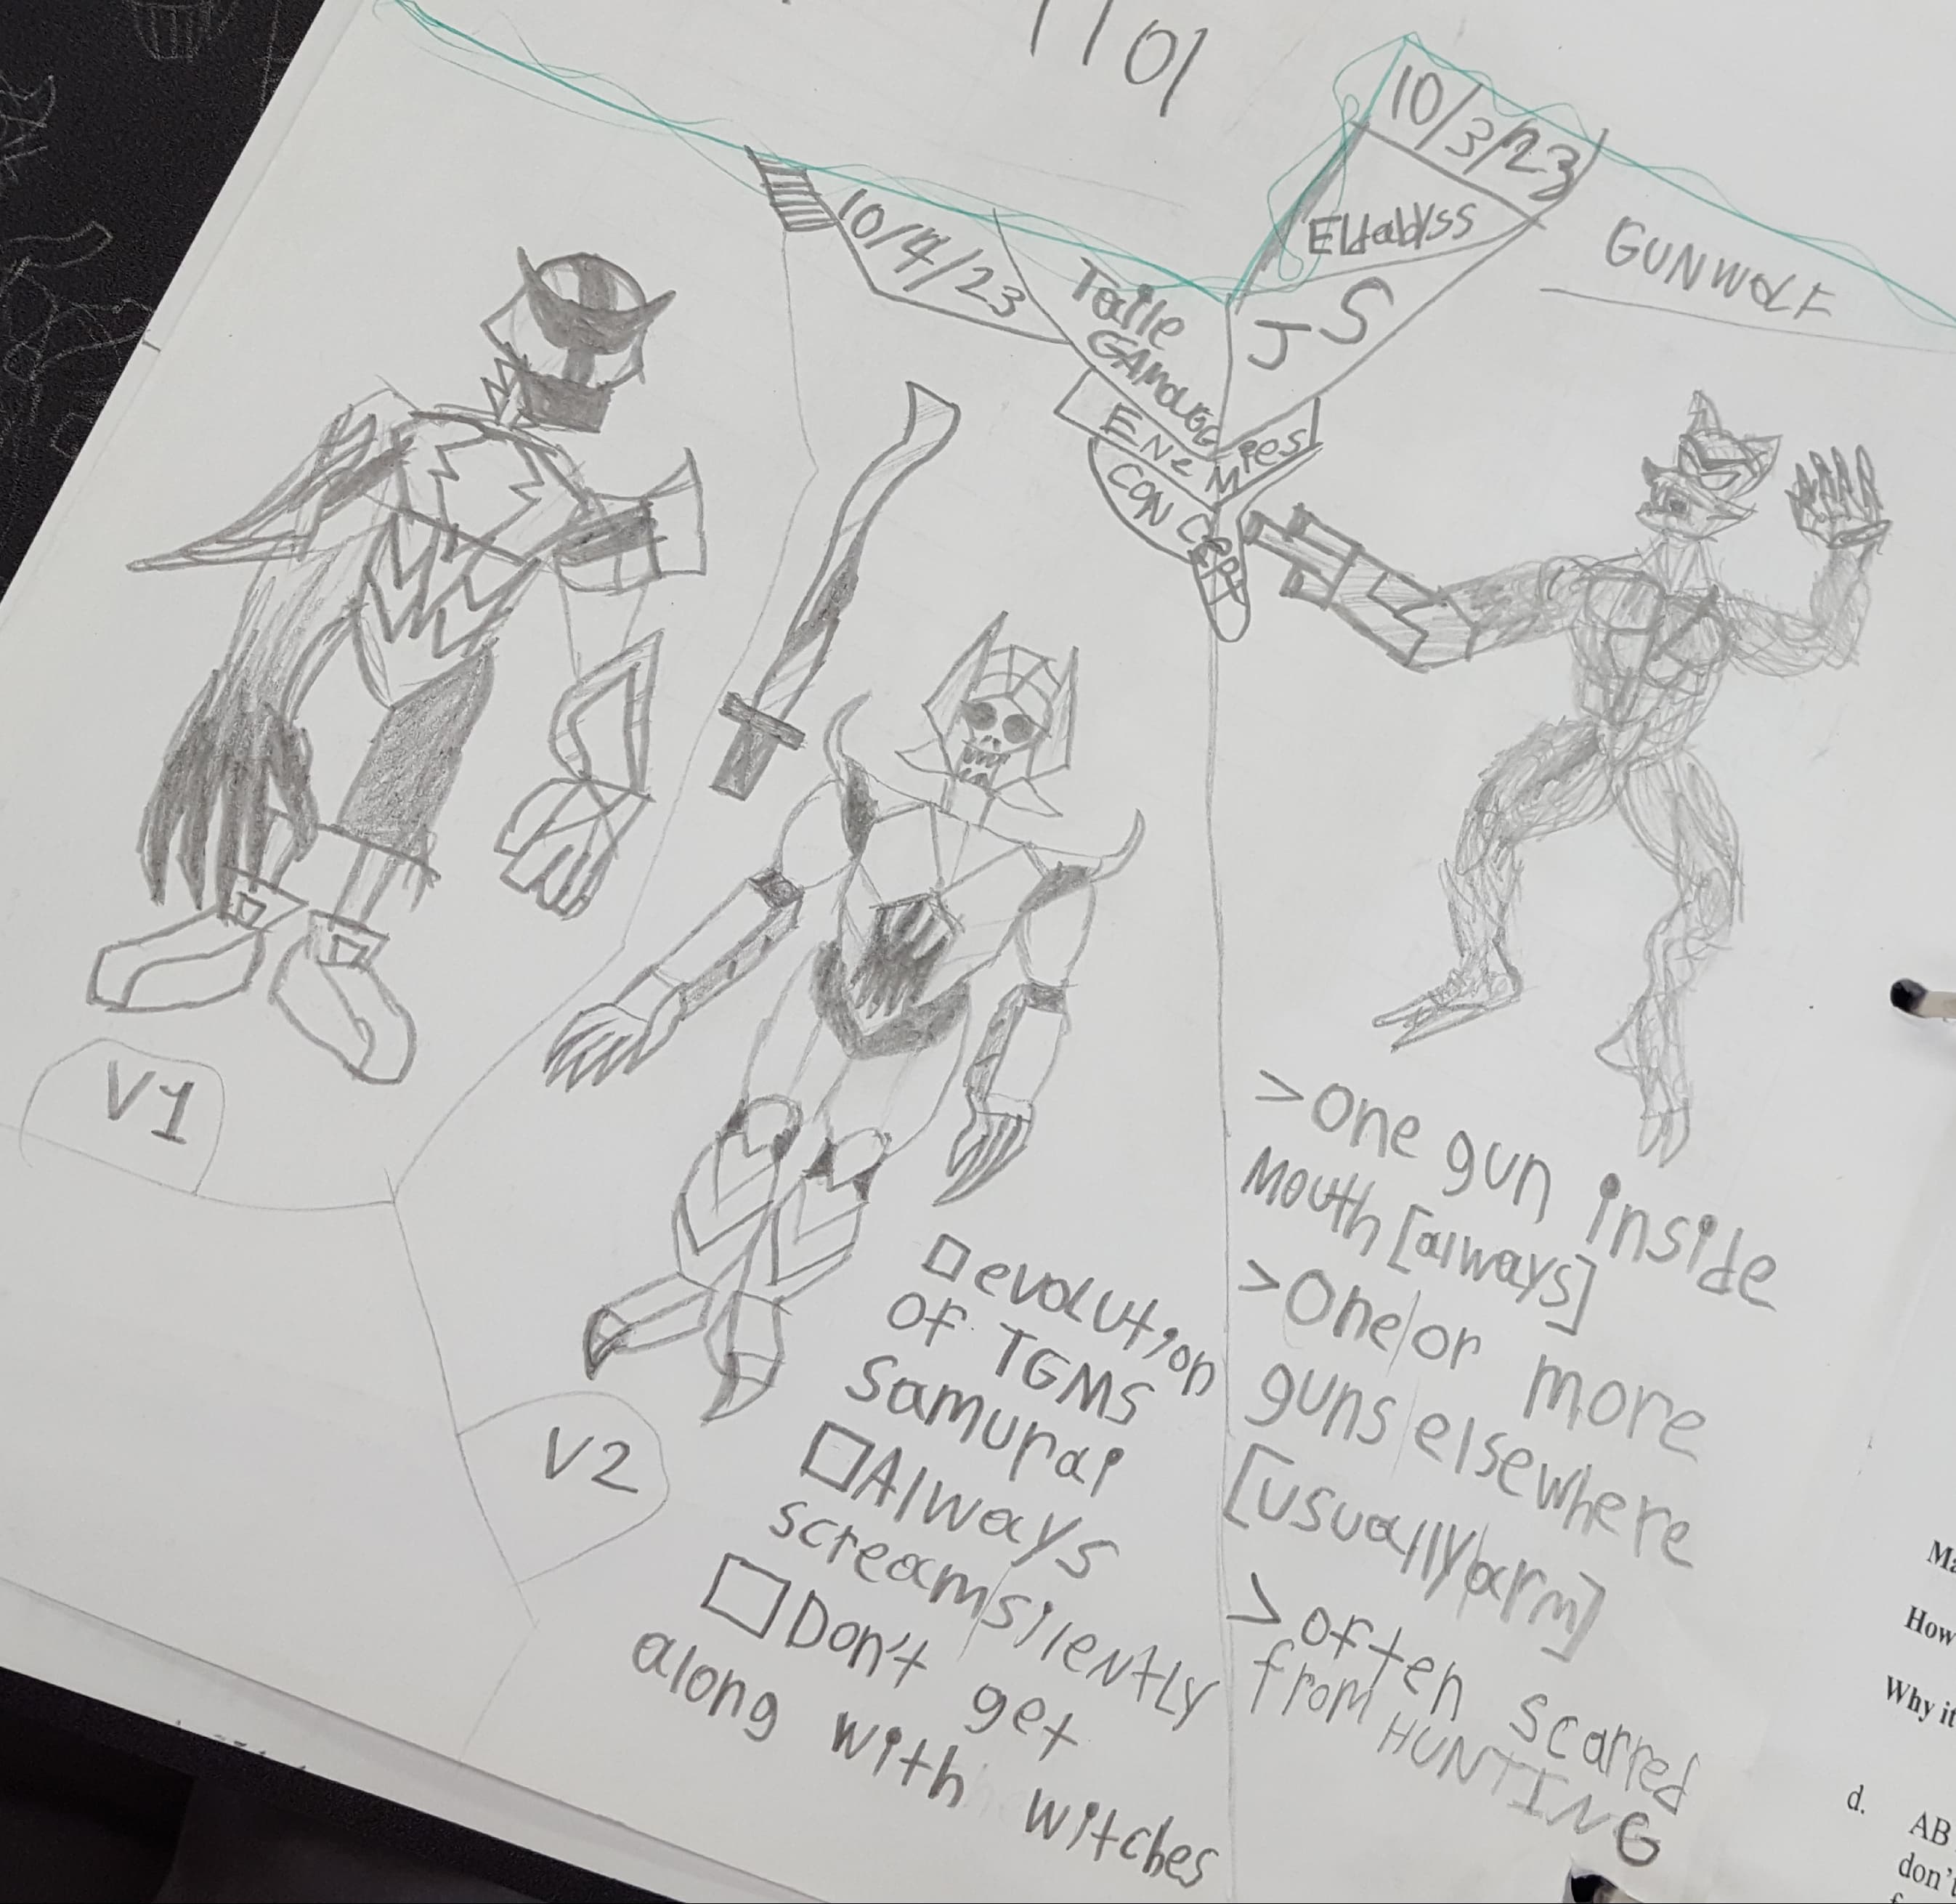 1101
10/3/23
Eldabyss
J S
GUNWOLF
10/4/23
Taile
ENEMies
CONCept
V1
V2
evolution
of TGMS
Samurai
Always
scream silently
Don't get
along with witches
>One gun inside
Mouth [always]
>One or more
guns elsewhere
[usually arm]
>often scarred
from HUNTING
Ma
How
Why it
d.
AB
don't